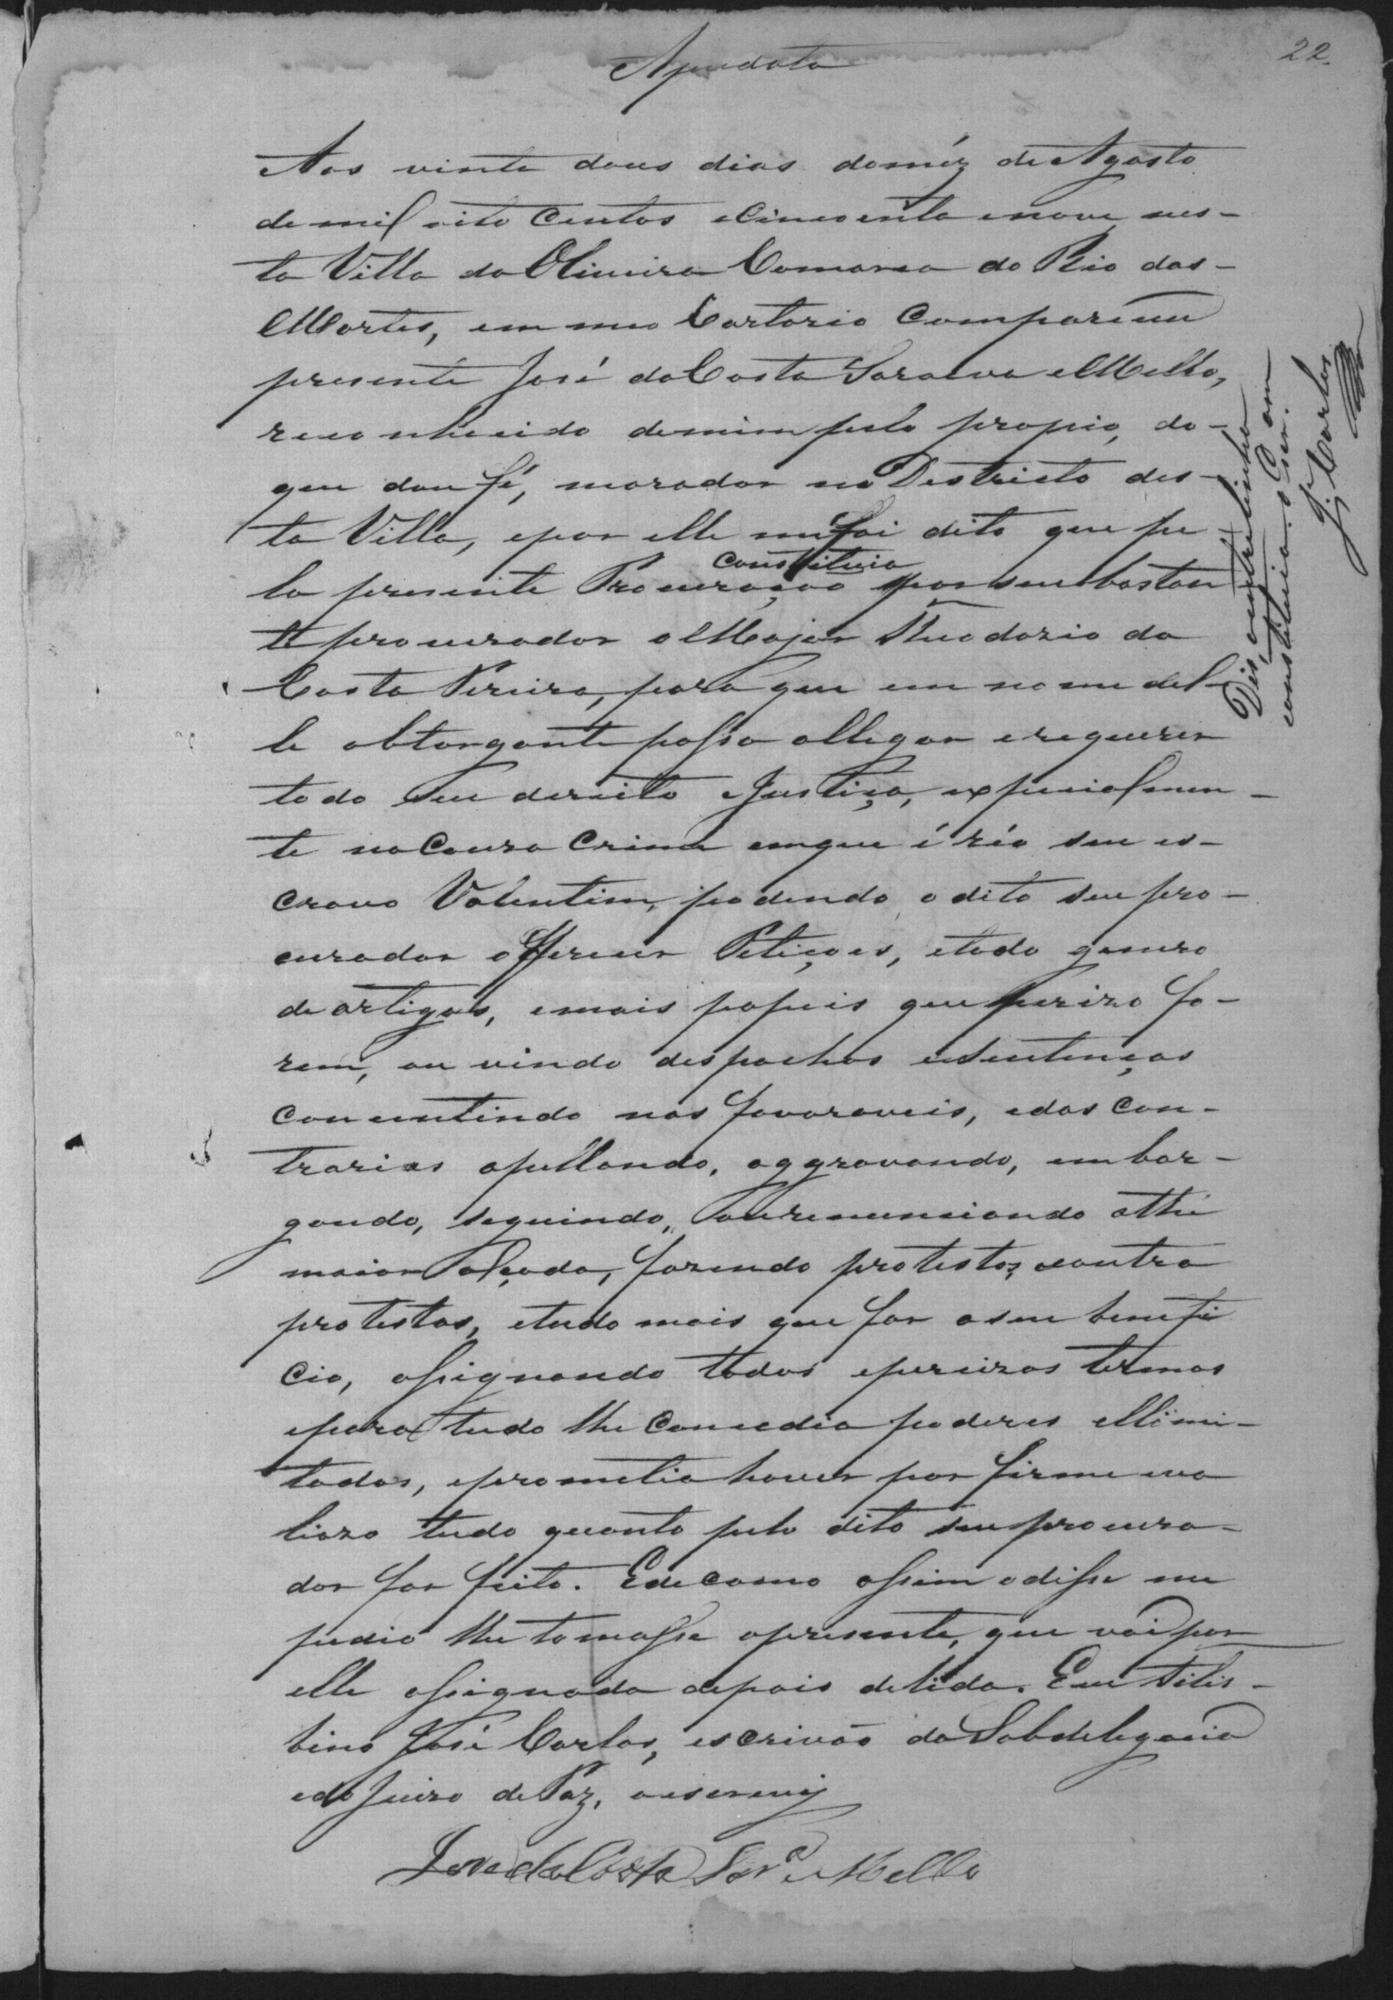 22
Apud acta
Aos vinte dous dias do mêz de Agosto
de mil oito centos e cincoenta e nove nes-
ta Villa da Oliveira Comarca do Rio das-
Mortes, em meu Cartorio compareceu
presente José da Costa Saraiva e Mello,
reconhecido de mim pelo propio, do-
que dou fé, morador no Districto des-
ta Villa, e por elle me foi dito que pe
constituia
la presente Procuração por seu bastan
te procurador o Major Theodozio da
Costa Pereira, para que em nome del-
le obtorgante possa allegar e requerer
todo seu dereito e Justiça, expecialmen-
te na Causa Crime em que é réo seu es-
cravo Valentim, podendo o dito seu pro-
curador offerecer Petiçoes, e todo genero
de artigos, e mais papeis que precizo fo-
rem, ouvindo despachos e Sentenças
concentindo nas favoraveis, e das con-
trarias apellando, aggravando, embar-
gando, seguindo, ou renunciando athé
maior Alçada, fazendo protestos, e contra
protestos, e tudo mais que for a seu benefi
cio, assignando todos e precizos termos
e para tudo lhe concedia poderes ellimi-
tados, e prometia haver por firme e va
liozo tudo quanto pelo dito seu procura-
dor for feito. E de como assim o disse me
pedio lhe tomasse a presente, que vai por
elle assignada depois de lida. Eu Felis-
bino José Carlos, escrivão da Subdelegacia
e do Juizo de Paz, o escrevy
José da Costa Sarª e Mello
Diz, a entre linha
constituia. o Escr. am
J. Carlos